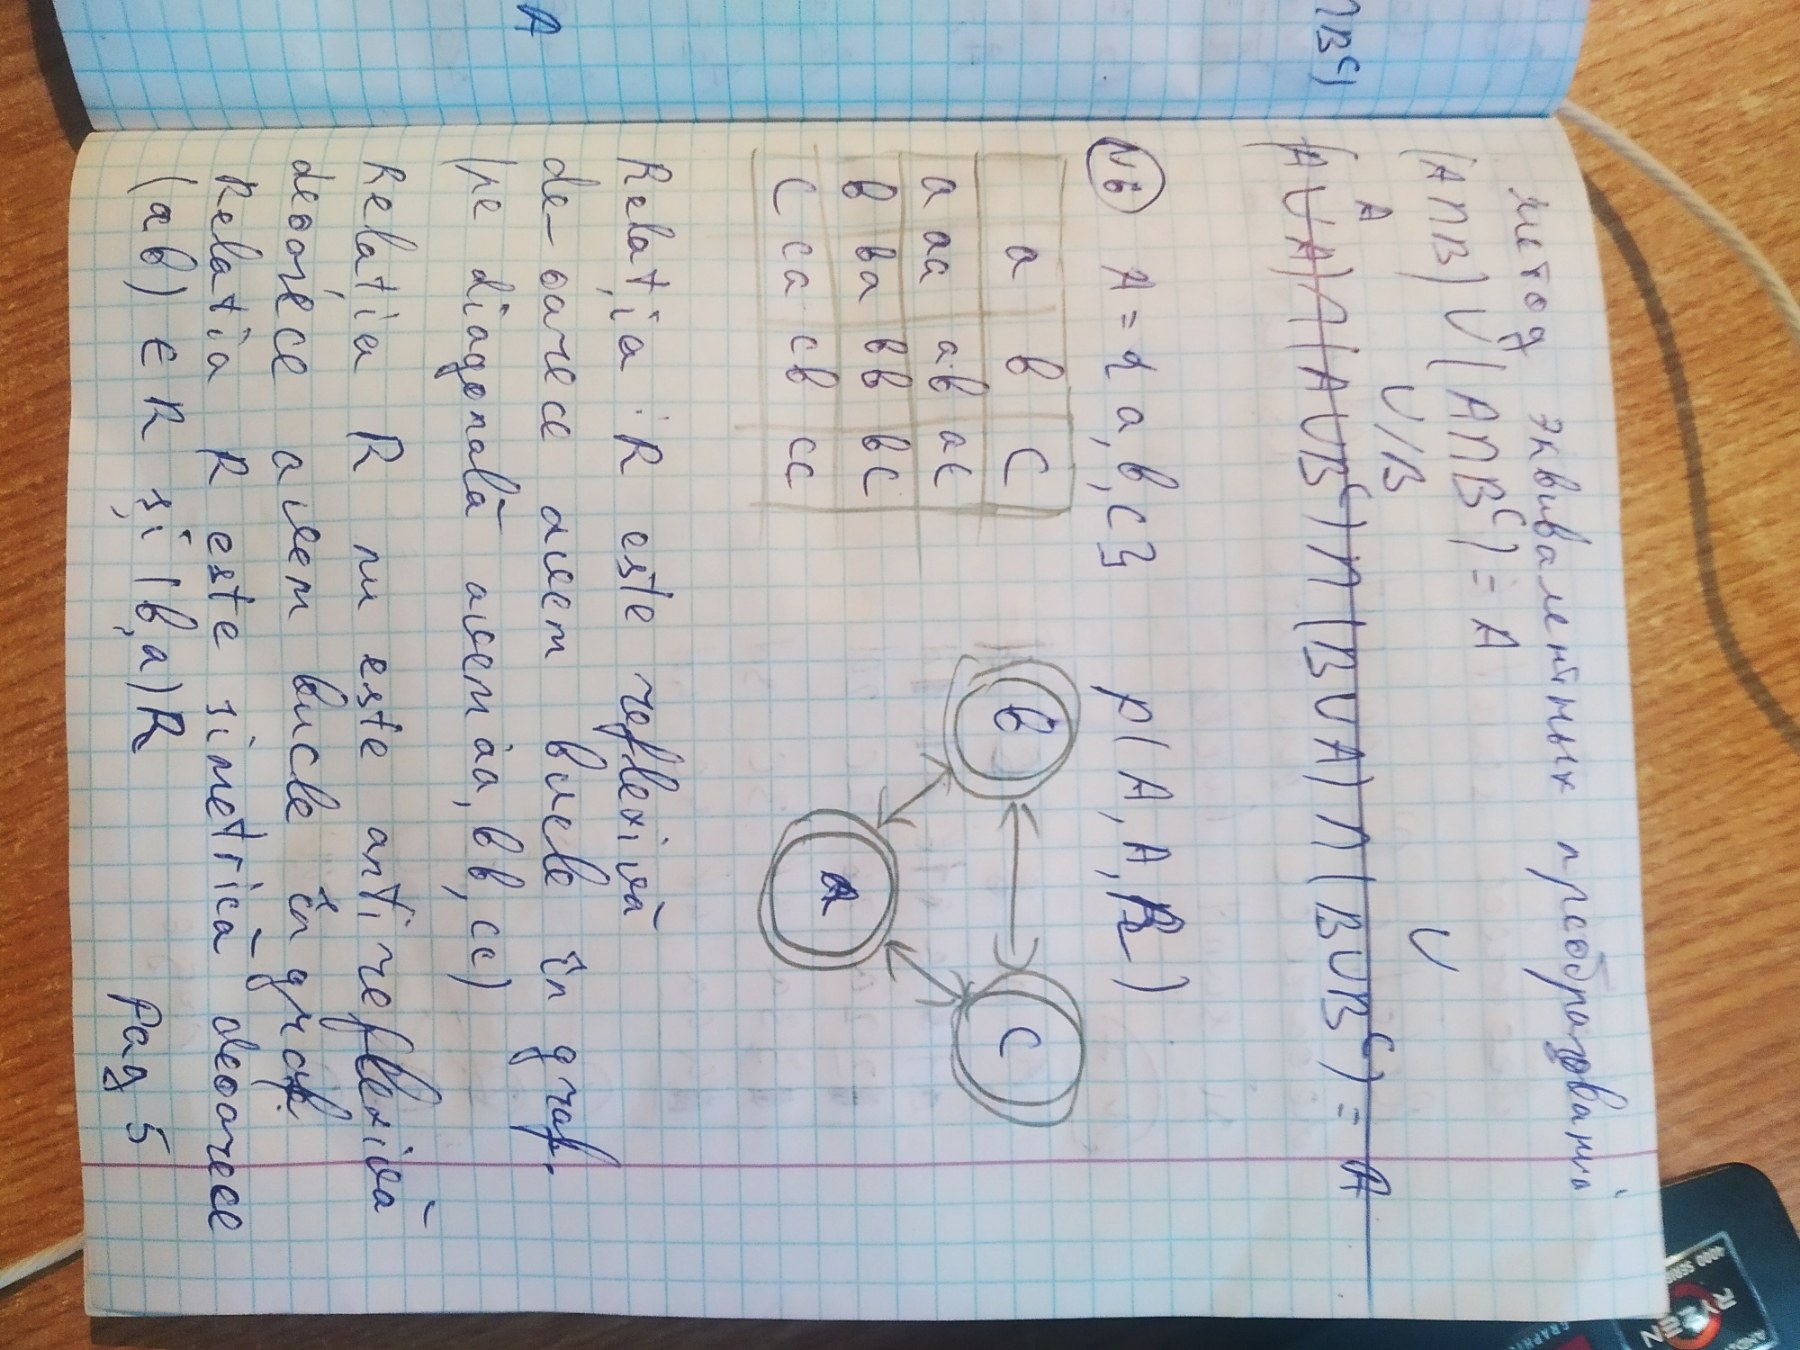 ∩B^C)
A
метод эквивалентных преобразований
(A∩B) ∪ (A∩B^C) = A
A ∪/B ∪
(A∪A)∩(A∪B^C)∩(B∪A)∩(B∪B^C) = A
№6 A = {a, b, c} P(A, A, R)
a b c
a aa ab ac
b ba bb bc
c ca cb cc
b c
a
Relația R este reflexivă
de-oarece avem bucle în graf.
(pe diagonală avem aa, bb, cc)
Relația R nu este antireflexivă
deoarece avem bucle în graf.
Relatia R este simetrică deoarece
(ab) ∈ R și (b,a)R
Pag 5
RYZEN
4000 SERIES